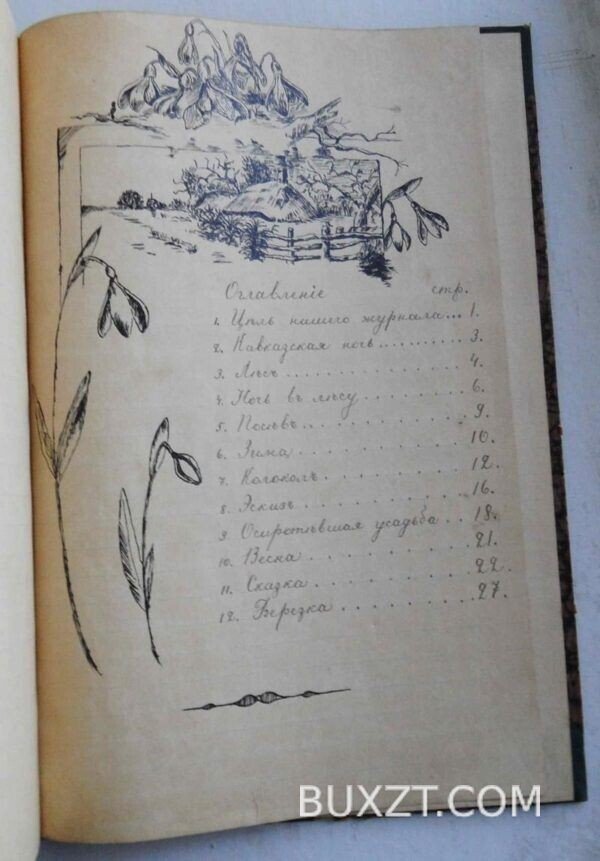 Оглавленіе стр.
1. Цѣль нашего журнала... 1.
2. Кавказская ночь.......... 3.
3. Лѣсъ.............. 4.
4. Ночь въ лѣсу.......... 6.
5. Посѣвъ............. 9.
6. Зима.............. 10.
7. Колоколъ........... 12.
8. Эскизъ............. 16.
9. Осиротѣвшая усадьба.. 18.
10. Весна............. 21.
11. Сказка............ 22.
12. Березка........... 27.
BUXZT.COM